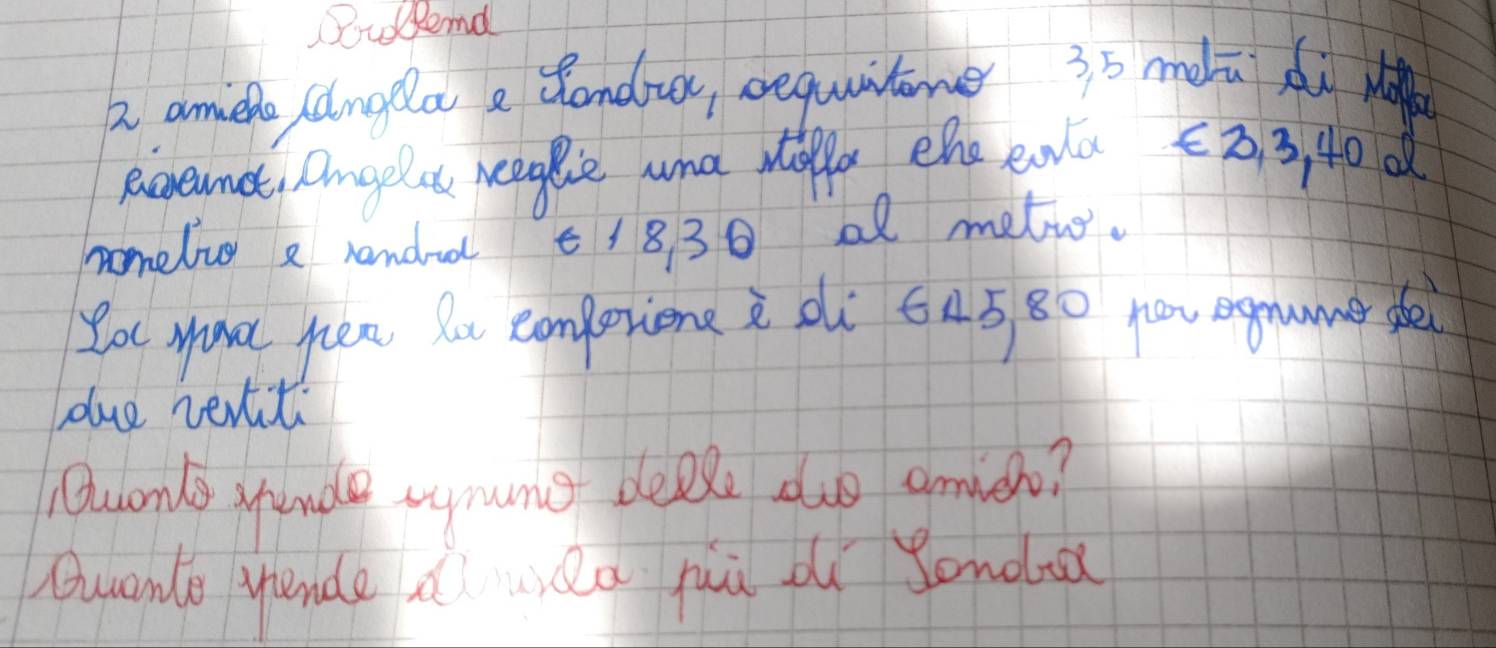 Problema
2 amiche, Angela e Sandra, acquistano 3,5 metri di stoffa
ciascuna. Angela sceglie una stoffa che costa € 23,40 al
metro e sandra € 18,30 al metro.
La spesa per la confezione è di €45,80 per ognuno dei
due vestiti
Quanto spende ognuno delle due amiche?
Quanto spende Angela più di Sandra